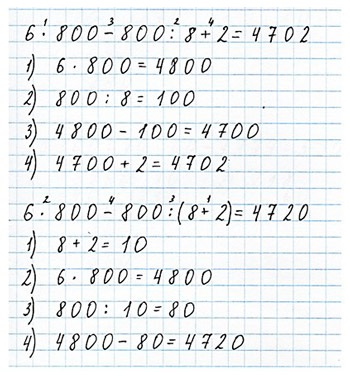 6 · 800 - 800 : 8 + 2 = 4702
1 3 2 4
1) 6 · 800 = 4800
2) 800 : 8 = 100
3) 4800 - 100 = 4700
4) 4700 + 2 = 4702
6 · 800 - 800 : (8 + 2) = 4720
2 4 3 1
1) 8 + 2 = 10
2) 6 · 800 = 4800
3) 800 : 10 = 80
4) 4800 - 80 = 4720